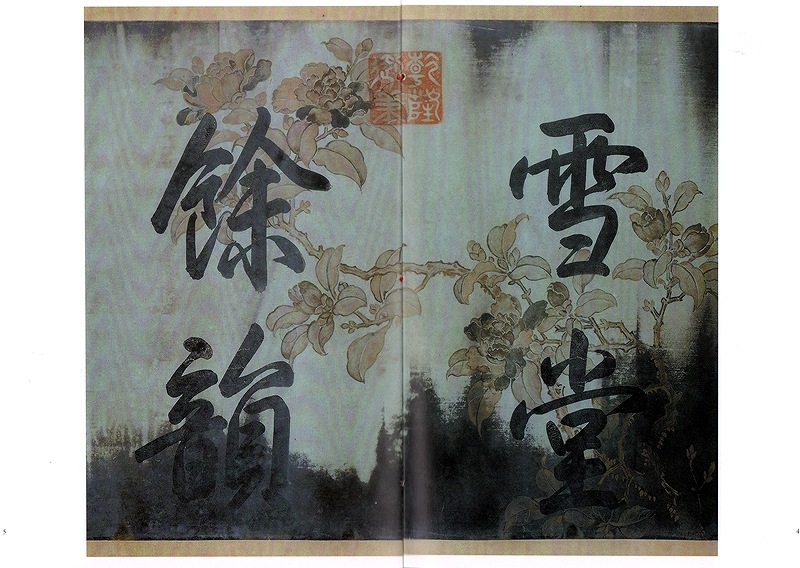 雪堂
餘韻
4
5